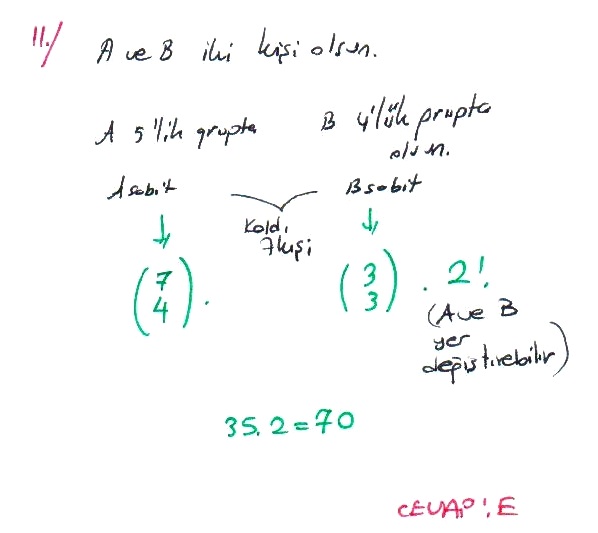 11./ A ve B iki kişi olsun.
A 5'lik grupta B 4'lük grupta
olsun.
A sabit B sabit
Kaldı
7 kişi
(7 4) . (3 3) . 2!
(A ve B
yer
değiştirebilir)
35.2=70
CEVAP: E